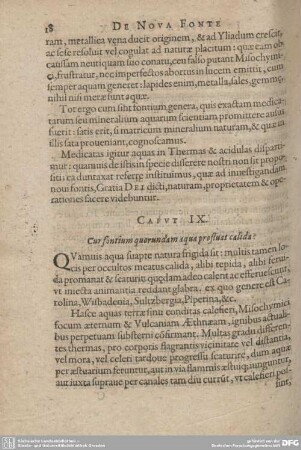 18 DE NOVA FONTE
ram, metallica vena ducit originem, & ad Yliadum crescit,
ac sese resolvit vel cogulat ad naturæ placitum: quæ eam ob
caussam neutiquam suo conatu, ceu falso putant Misochymi-
ci, frustratur, nec imperfectos abortus in lucem emittit, cum
semper aquam generet: lapides enim, metalla, sales, gemmæ
nihil nisi meræ sunt aquæ.
Tot ergo cum sint fontium genera, quis exactam medica-
tarum seu mineralium aquarum scientiam promittere ausus
fuerit: satis erit, si matricum mineralium naturam, & quæ in
illis sata proveniant, cognoscamus.
Medicatas igitur aquas in Thermas & acidulas disparti-
mur: quamvis de istis in specie disserere nostri non sit propo-
siti: ea duntaxat referre instituimus, quæ ad investigandam
novi fontis, Gratia DEI dicti, naturam, proprietatem & ope-
rationes facere videbuntur.
CAPVT IX.
Cur fontium quorundam aqua profluat calida?
QVamvis aqua suapte natura frigida sit: multis tamen lo-
cis per occultos meatus calida, alibi tepida, alibi fervi-
da promanat & scaturit: quædam adeo calent ac effervescunt,
ut injecta animantia reddant glabra. ex quo genere est Ca-
rolina, Wisbadenia, Sultzbergia, Piperina, &c.
Hasce aquas terræ sinu conditas calefieri, Misochymici
focum æternum & Vulcaniam Æthnæam, ignibus actuali-
bus perpetuam substerni cōfirmant. Multas gradu differen-
tes thermas, pro corporis flagrantis vicinitate vel distantia,
vel mora, vel celeri tardove progressu scaturire, dum aquæ
per æstuarium feruntur, aut in via flammis æstuiq; iunguntur,
aut iuxta suprave per canales tam diu currūt, ut calefieri pos-
sint,